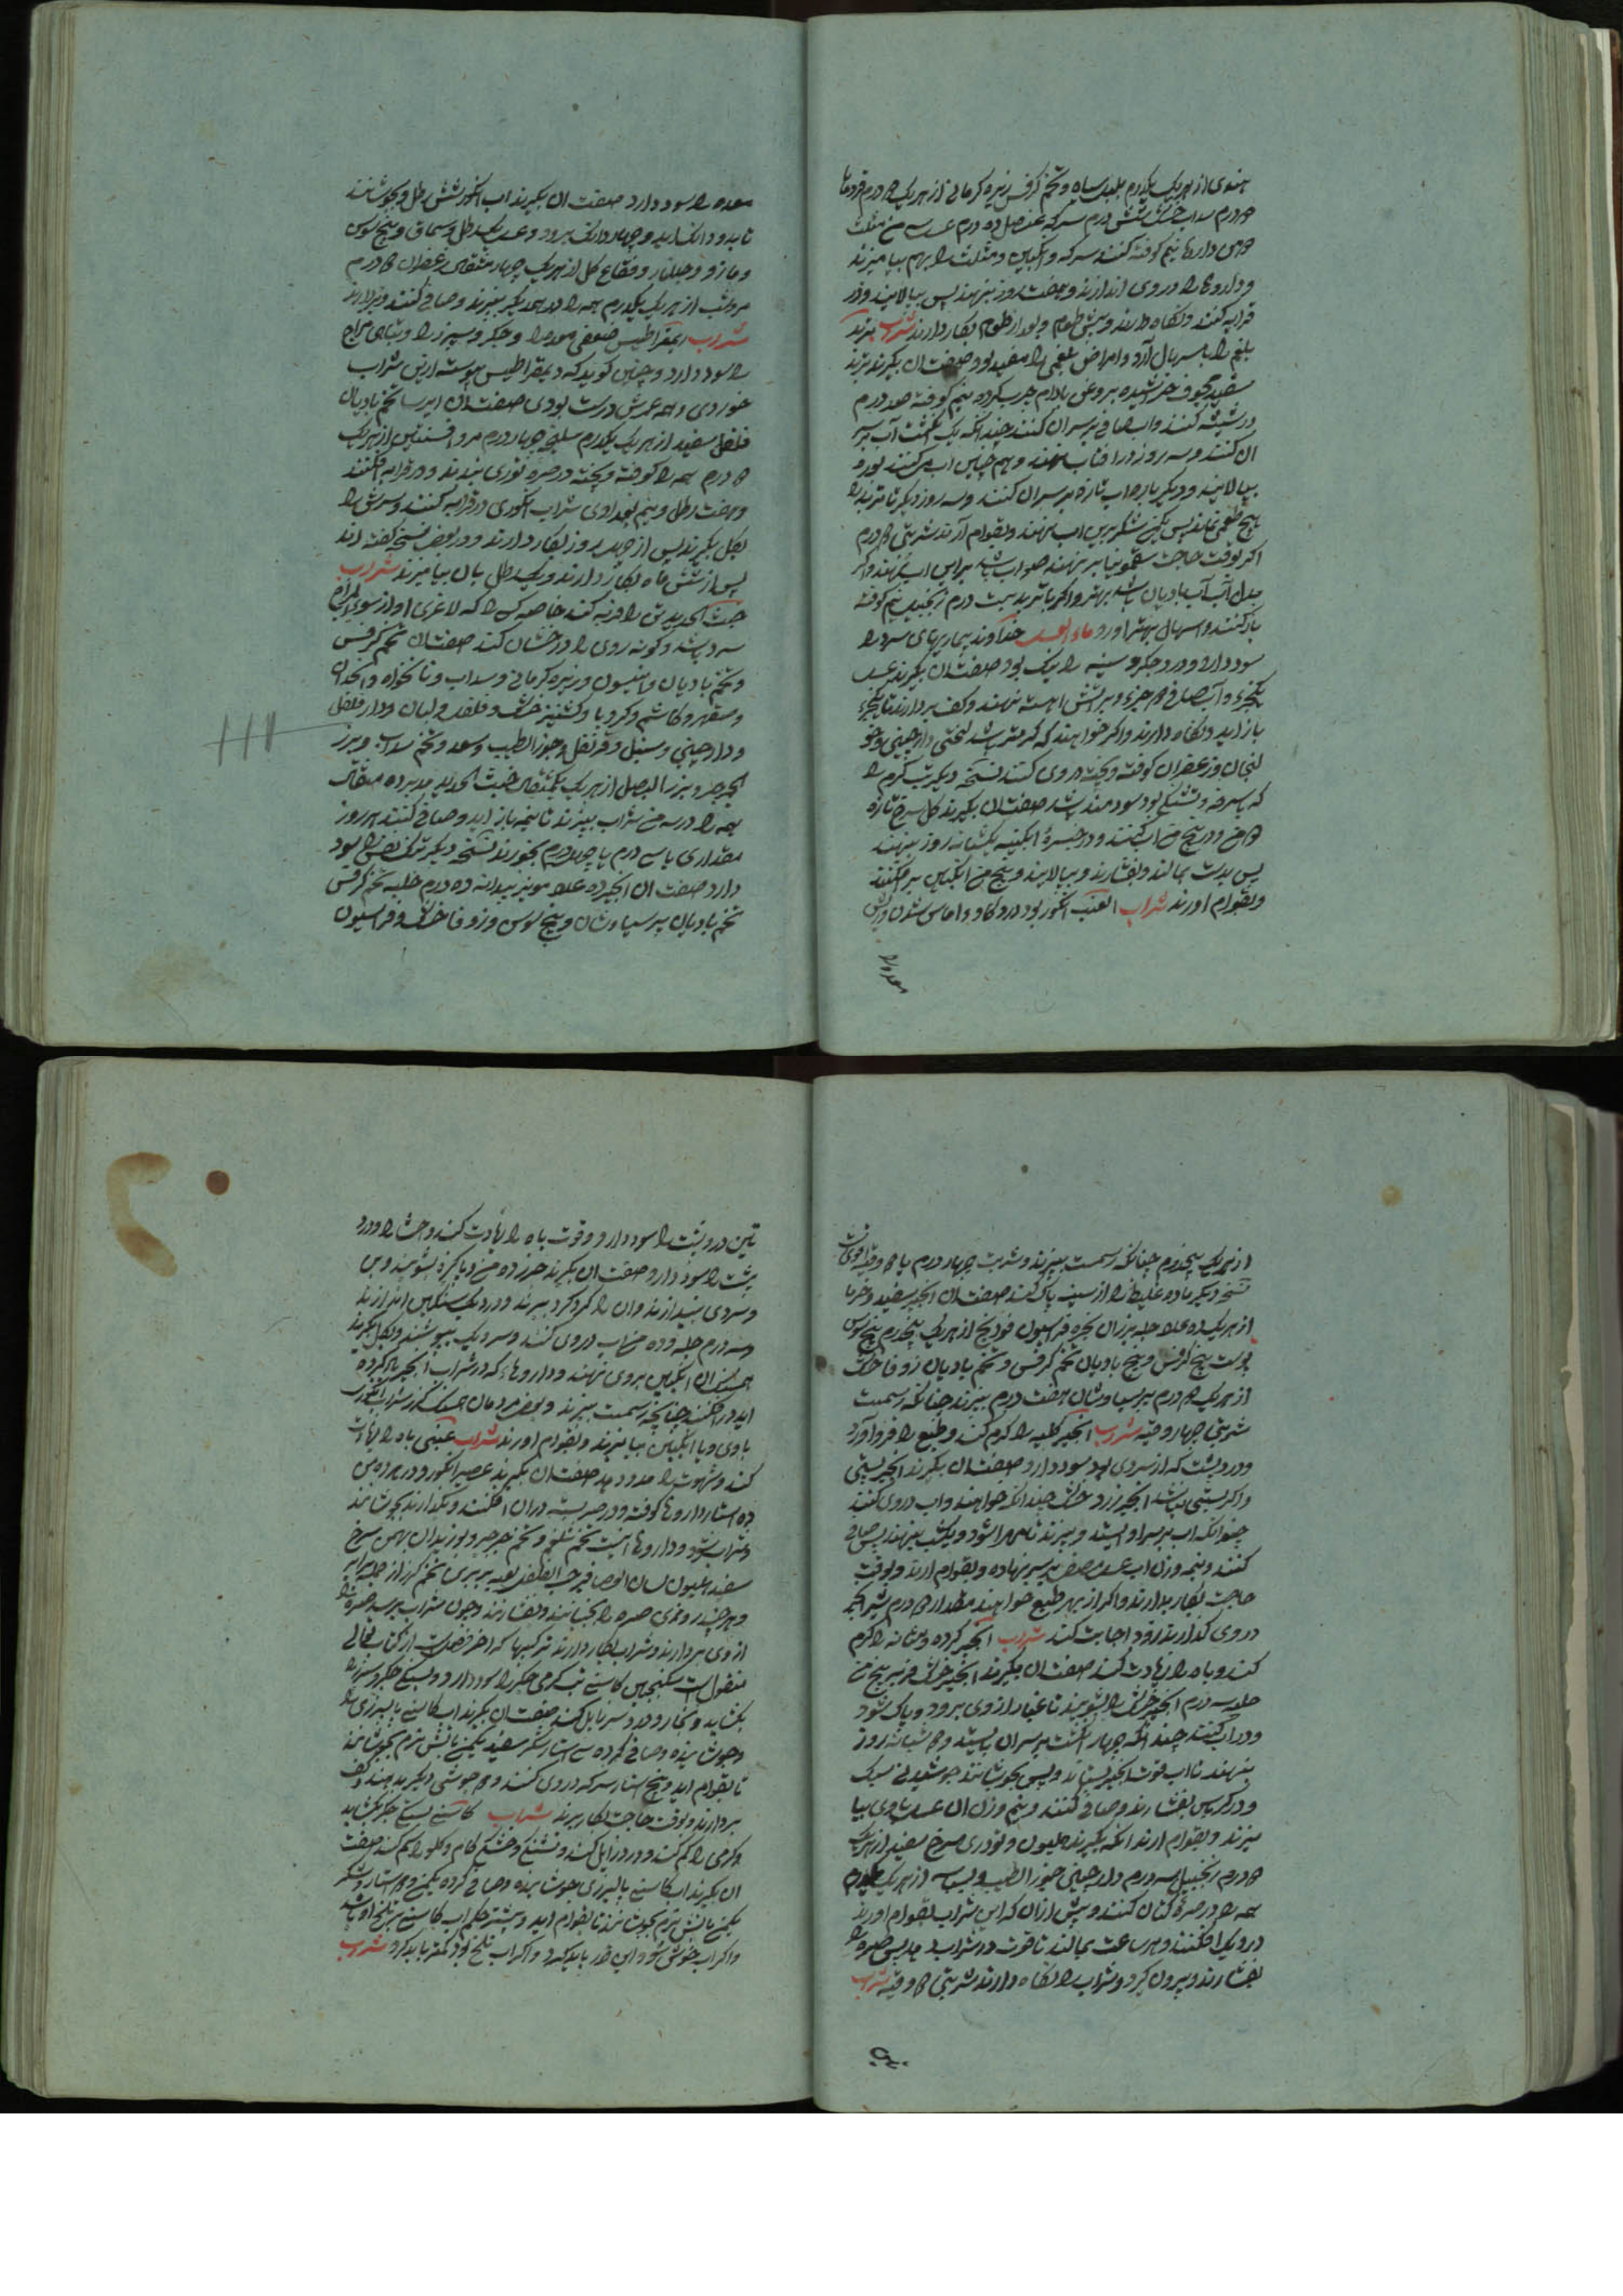 هندی از هر یک یکدرم هلیله سیاه و تخم کرفس زیره کرمانی از هر یک درم
درم سداب خشک شش درم سرکه عنصل ده درم عسل سه من مثلث
داروها نیم کوفته کنند سرکه و انکبین و مثلث را بهم بیامیزند
و داروها را در وی اندازند و هفت روز بنهند پس بپالایند و در
قرابه کنند و نکاه دارند و پیش طعام و بعد از طعام بکار دارند شراب تربد
بلغم را باسهال آرد و امراض بلغمی را مفید بود صفت ان بکیرند تربد
سفید مجوف خراشیده بروغن بادام چرب کرده نیم کوفته صد درم
در شیشه کنند و اب صافی بر سر ان کنند چندانکه یک انکشت آب بر سر
ان کنند و سه روز در افتاب بنهند و هم چنین اب
بپالایند و دیکر باره اب تازه بر سر ان کنند و سه روز دیکر تا تربد را
هیچ طعمی نماند پس یکمن شکر برین اب بنهند و بقوام آرند شربتی درم
اکر بوقت حاجت سقمونیا بر نهند صواب باشد
بدل آب آب بادیان باشد بهتر و اکر با تربد بیست درم زنجبیل نیم کوفته
یار کنند و اسهال بهتر اورد ماء العسل خداوند بیماریهای سرد را
سود دارد و درد جکر و سینه را نیک بود صفت ان بکیرند عسل
یکجزء و آب صافی جزء و بر آتش اهسته نهند و کف بردارند تا یکجزء
باز اید و نکاه دارند و اکر خواهند که کرمتر باشد لختی دارچینی و خو
لنجان و زعفران کوفته و بیخته در وی کنند نسخه دیکر تب کرم را
که با سرفه و تشنکی بود سودمند باشد صفت ان بکیرند کل سرخ تازه
من و در پنج من اب کنند و در خنبره ابکینه یکشبانه روز بنهند
پس بدست بمالند و بفشارند و بپالایند و پنج من انکبین بر افکنند
و بقوام اورند شراب العنب انکور بود درد کلو و اماس
معده را
معده را سود دارد صفت ان بکیرند اب انکور شش رطل و بجوشانند
تا بدو دانک اید و چهار دانک برود و عسل یکرطل و سماق و بیخ سوس
و مازو و جلنار و فقاع کل از هر یک چهار مثقال زعفران درم
از هر یک یکدرم همه را در همدیکر بپزند و صافی کنند و بردارند
شراب دیمقراطیس ضعفی معده را و جکر و سپرز را و تباهی مزاج
را سود دارد و چنین کویند که دیمقراطیس پیوسته ازین شراب
خوردی و همه عمرش درست بودی صفت ان ایرسا تخم بادیان
فلفل سفید از هر یک یکدرم سلیخه چهار درم مر و افسنتین از هر یک
درم همه را کوفته و بیخته در صره توزی بندند و در قرابه افکنند
و هفت رطل و نیم بغدادی شراب انکوری در قرابه کنند و سرش را
بکل بکیرند پس از چهل روز بکار دارند و در بعض نسخه کفته اند
پس از شش ماه بکار دارند و یک رطل بان بیامیزند شراب
خبث الحدید تن را فربه کند خاصه کسی را که لاغری او از سوی المزاج
سرد باشد و کونه روی را درخشان کند صفت ان تخم کرفس
و تخم بادیان و انیسون و زیره کرمانی و سداب و نانخواه و انجدان
و صعتر و کاشم و کرویا و کشنیز خشک و فلفل و لبان و دارفلفل
و دارچینی و سنبل و قرنفل و جوز الطیب و سعد و تخم سداب و بزر
الجرجیر و بزر البصل از هر یک یکمثقال خبث الحدید مدبر ده مثقال
همه را در سه من شراب بپزند تا بنیمه باز اید و صافی کنند هر روز
مقداری تا سی درم یا چهل درم بخورند نسخه دیکر تنک نفس را سود
دارد صفت ان انجیر ده عدد مویز بیدانه ده درم حلبه تخم کرفس
تخم بادیان پرسیاوشان و بیخ سوس و زوفا خشک و فراسیون
از هر یک پنجدرم چنانکه رسمست بپزند و شربت چهار درم با وقیه
نسخه دیکر ماده غلیظ را از سینه پاک کند صفت ان انجیر سفید و خرما
از هر یک ده عدد حلبه فراسیون فودنج از هر یک پنجدرم بیخ سوس
پوست بیخ کرفس و بیخ بادیان تخم کرفس و تخم بادیان زوفا خشک
از هر یک درم پرسیاوشان هفت درم بپزند چنانکه رسمست
شربتی چهار وقیه شراب انجیر کلیه را کرم کند و طبع را فرو آورد
و درد پشت که از سردی بود سود دارد صفت ان بکیرند انجیر بستی
و اکر بستی نباشد انجیر زرد خشک چندانکه خواهند و اب در وی کنند
چندانکه اب بر سر او ایستد و بپزند تا مهرا شود و یکشب بنهند پس صافی
کنند و نیمه وزن اب عسل مصفی بر سر نهاده و بقوام ارند و بوقت
حاجت بکار دارند و اکر از بهر طبع خواهند مقدار درم شیر انجیر
در وی کدارند زود اجابت کند شراب انجیر کرده و مثانه را کرم
کند و باه را زیادت کند صفت ان بکیرند انجیر خشک فربه پنج من
حلبه سه درم انجیر خشک را بشویند تا غبار از وی برود و پاک شود
و در اب کنند چندانکه چهار انکشت بر سر ان بایستد و شبانه روز
بنهند تا اب قوت انجیر بستاند و پس بجوشانند جوشیدنی سبک
و در کرباس بفشارند و صافی کنند و نیم وزن ان عسل با وی بیا
میزند و بقوام ارند انکه بکیرند هلیون و تودری سرخ سفید از هر یک
درم زنجبیل سه درم دارچینی جوز الطیب و بسباسه از هر یک یکدرم
همه را در صره کتان کنند و پیش ازان که این شراب بقوام اورند
در دیک افکنند و هر ساعت بمالند تا قوت در شراب دهد پس صره را
بفشارند و بیرون کرده و شراب را نکاه دارند شربتی وقیه شراب
تین
تین درد پشت را سود دارد و قوت باه را زیادت کند و احشا را و درد
پشت را سود دارد صفت ان بکیرند خرز ده من و پاکیزه بشویند و بن
و سر وی بیندازند و ان را کرد کرد ببرند و در دیک سنکین اندازند
و سه درم حلبه و ده من اب در وی کنند و سر دیک بپوشند و بکل بکیرند
همسنک ان انکبین بر وی نهند و داروهاء که در شراب انجیر یاد کرده
اید در افکنند چنانچه رسمست بپزند و بعض مردمان همسنک کزر شراب انکوری
با وی و با انکبین بیامیزند و بقوام اورند شراب عنبی باه را زیادت
کند و شهوت را مدد دهد صفت ان بکیرند عصیر انکور و در هر ده من
ده استار داروها کوفته و در صره بسته دران افکنند و بکدارند بجوشانند
و شراب شود و داروها اینست تخم شلغم و تخم جرجیر و بوزیدان بهمن سرخ
سفید هلیون لسان العصافیر حب الفلفل لعبه بربری تخم کزر از جمله برابر
و هر چند روزی صره را بجنبانند و بفشارند و چون شراب برسد صره را
از وی بردارند و شراب بکار دارند ترکیبها که اخر فصلست از کتاب بقالی
منقول است سکنجبین کاسنی تب کرمی جکر را سود دارد و بستکی جکر و سپرز را
بکشاید و بخار و درد سر زایل کند صفت ان بکیرند اب کاسنی پالیزی
و جوشانیده و صافی کرده سی استار شکر سفید یکمن باتش نرم بجوشانند
تا بقوام اید و پنج استار سرکه در وی کنند و جوشی دیکر بدهند و کف
بردارند و بوقت حاجت بکار برند شراب کاسنی بستکی جکر بکشاید
و کرمی را کم کند و درد زایل کند و تشنکی و خشکی کام و کلو را کم کند صفت
ان بکیرند اب کاسنی پالیزی جوشانیده و صافی کرده یکمن و استار و شکر
یکمن باتش نرم بجوشانند تا بقوام اید و بیشتر حکم اب کاسنی بر تلخ او باشد
و اکر اب خوش بود این قدر باید کرد و اکر اب تلخ بود کمتر باید کرد شراب